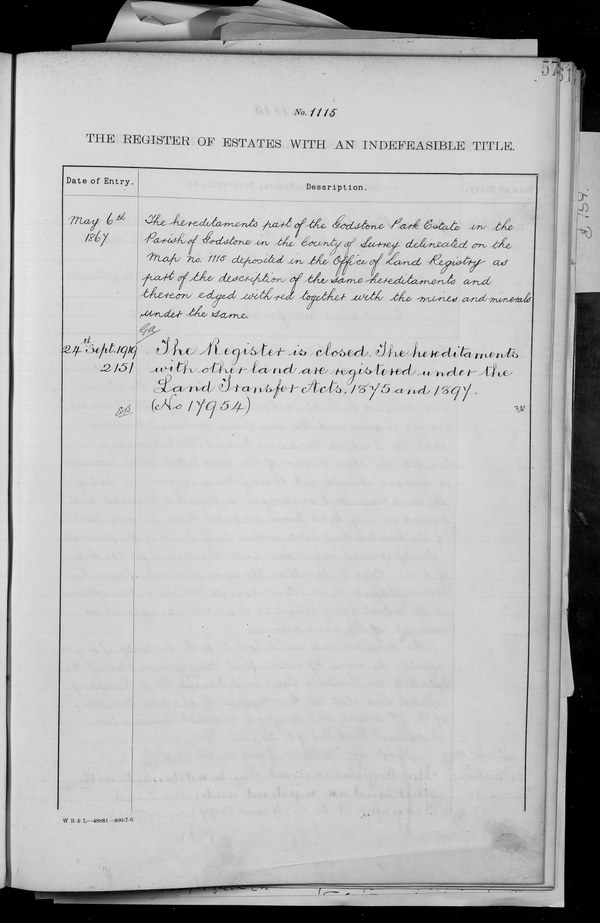 57
No. 1115
THE REGISTER OF ESTATES WITH AN INDEFEASIBLE TITLE.
Date of Entry.
Description.
May 6th
1867
The hereditaments part of the Godstone Park Estate in the
Parish of Godstone in the County of Surrey delineated on the
Map No. 1115 deposited in the Office of Land Registry as
part of the description of the same hereditaments and
thereon edged with red together with the mines and minerals
under the same.
24th Sept. 1919
2151
The Register is closed. The hereditaments
with other land are registered under the
Land Transfer Acts, 1875 and 1897.
(No 17954)
W B & L—48881—800-7-6